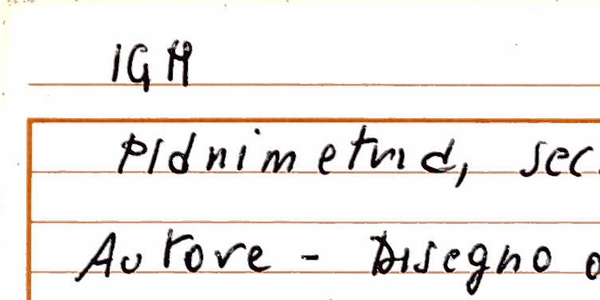 IGM
Planimetria, sec.
Autore - Disegno